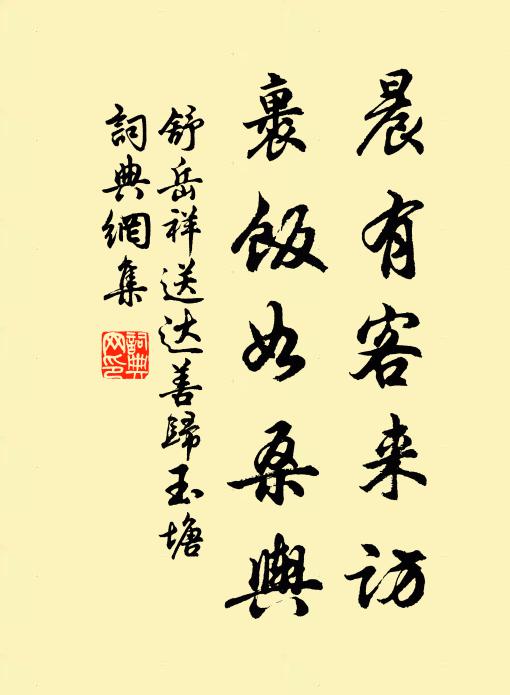 晨有客来访
裹飯如桑輿
舒岳祥送达善歸玉塘
詞典網集
詞典
网印